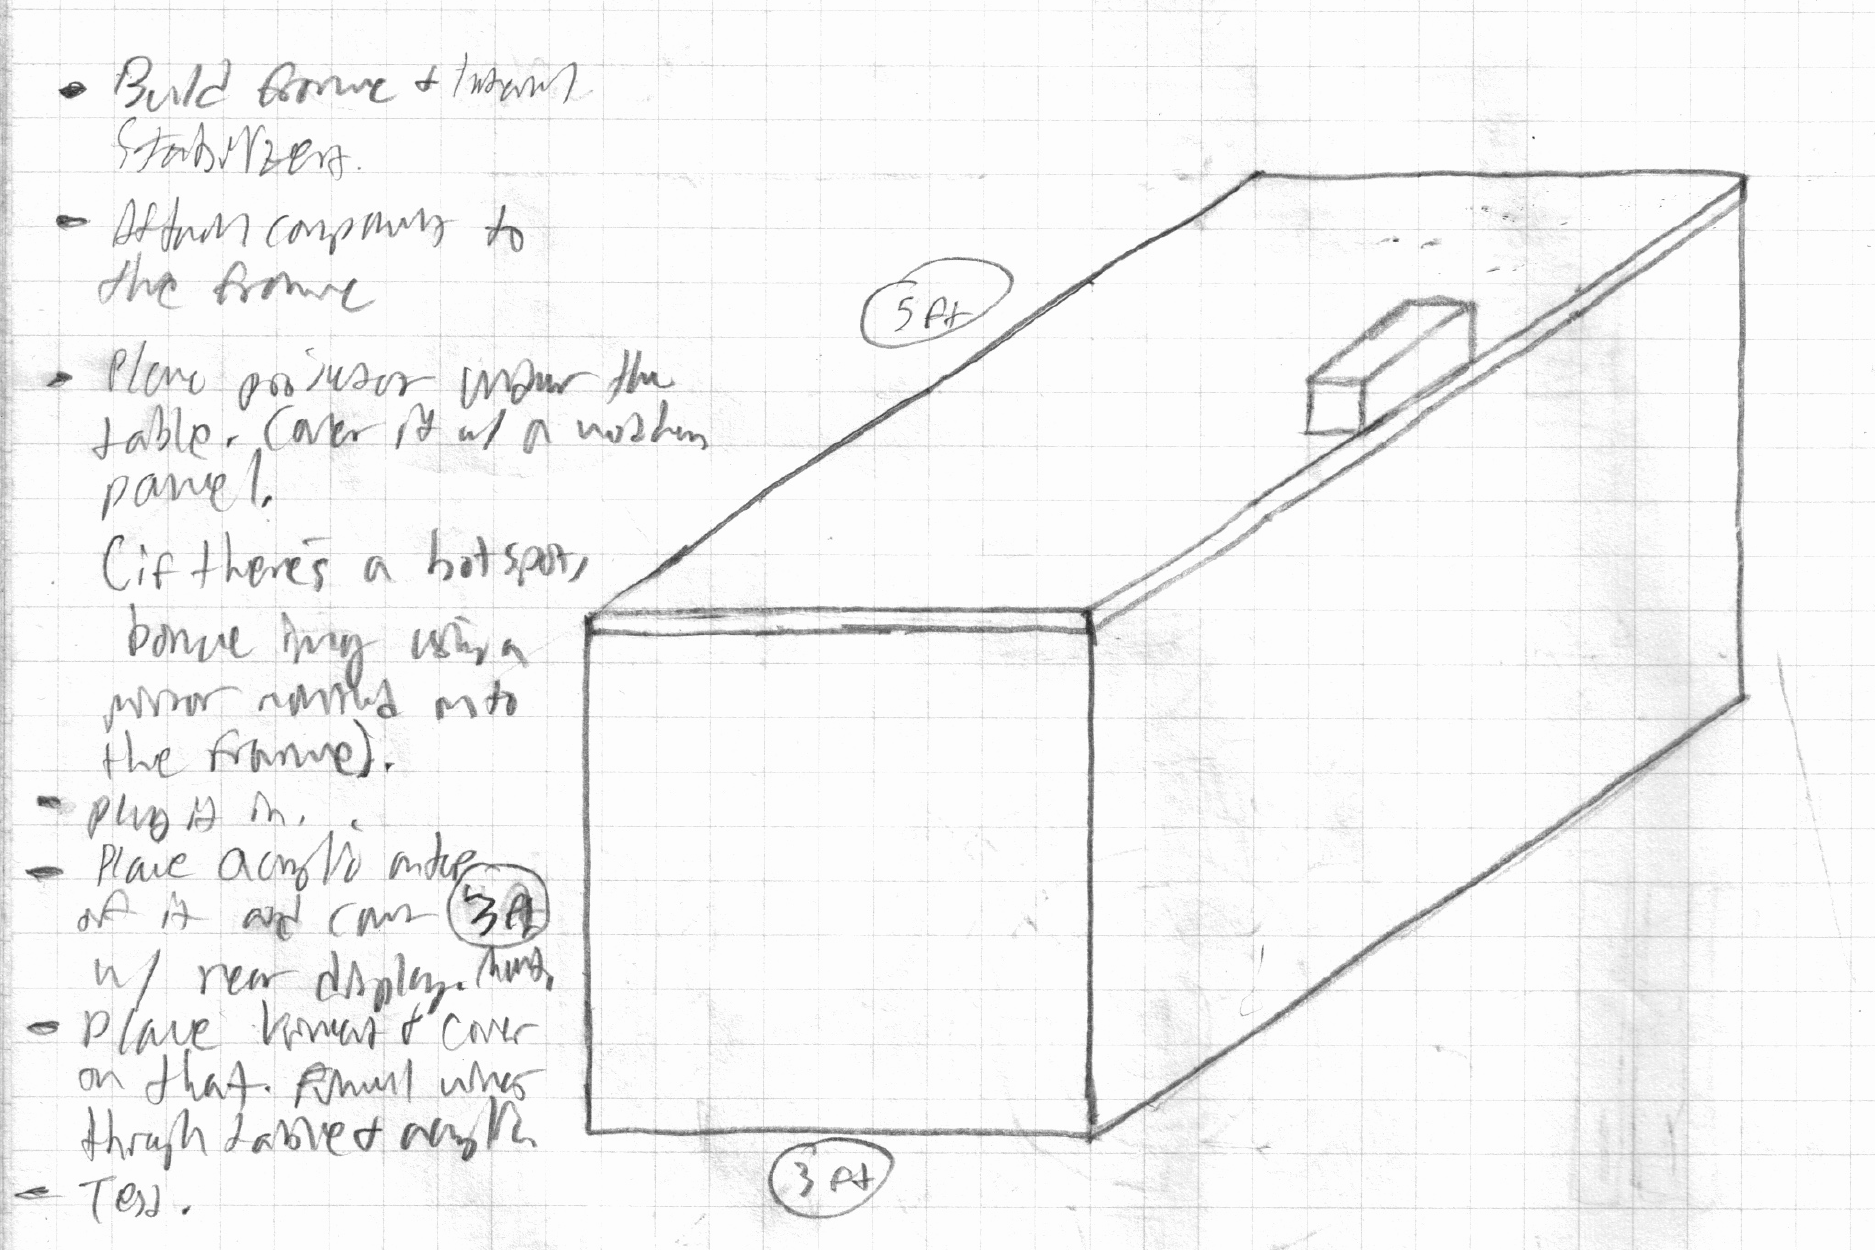 Build frame + Internal
Stabilizers.
Attach components to
the frame
Place projector under the
table. Cover it w/ a wooden
panel.
(if there's a hotspot,
bounce img using a
mirror mounted onto
the frame).
plug it in.
Place acrylic on top
of it and cover
w/ rear display.
Place Kinect & cover
on that. wires
through table & acrylic
Test.
5 ft
3 ft
3 ft